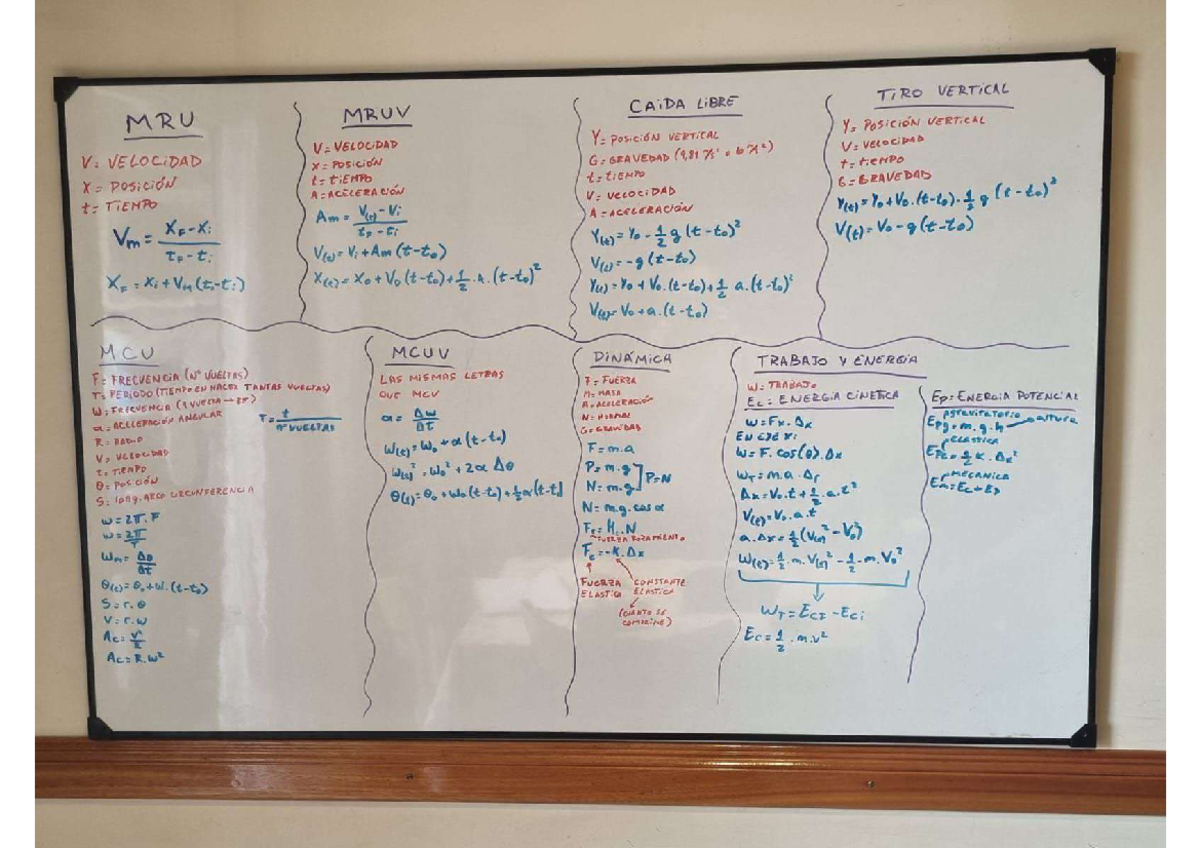 MRU
V= VELOCIDAD
X= POSICIÓN
t= TIEMPO
Vm = (XF - Xi) / (tF - ti)
XF = Xi + VM (tF - ti)
MRUV
V= VELOCIDAD
X= POSICIÓN
t= TIEMPO
A= ACELERACIÓN
Am = (V(t) - Vi) / (tF - ti)
V(t) = Vi + Am (t - t0)
X(t) = X0 + V0 (t - t0) + 1/2 . A . (t - t0)²
CAIDA LIBRE
Y= POSICIÓN VERTICAL
G= GRAVEDAD
t= TIEMPO
V= VELOCIDAD
A= ACELERACIÓN
Y(t) = Y0 - 1/2 g (t - t0)²
V(t) = -g (t - t0)
Y(t) = Y0 + V0 . (t - t0) + 1/2 a . (t - t0)²
V(t) = V0 + a . (t - t0)
TIRO VERTICAL
Y= POSICIÓN VERTICAL
V= VELOCIDAD
t= TIEMPO
G= GRAVEDAD
Y(t) = Y0 + V0 . (t - t0) - 1/2 g (t - t0)²
V(t) = V0 - g (t - t0)
MCU
F= FRECUENCIA (Nº VUELTAS)
T= PERIODO (TIEMPO EN HACER TANTAS VUELTAS)
W= FRECUENCIA (1 VUELTA → 2π)
α= ACELERACIÓN ANGULAR
R= RADIO
V= VELOCIDAD
t= TIEMPO
θ= POSICIÓN
S= LONG. ARCO CIRCUNFERENCIA
T = t / nº VUELTAS
ω = 2π . F
ω = 2π / T
ωm = Δθ / Δt
θ(t) = θ0 + ω . (t - t0)
S = r . θ
V = r . ω
Ac = v² / r
Ac = R . ω²
MCUV
LAS MISMAS LETRAS
QUE MCU
α = Δω / Δt
ω(t) = ω0 + α (t - t0)
ω(t)² = ω0² + 2α Δθ
θ(t) = θ0 + ω0 (t - t0) + 1/2 α (t - t
DINÁMICA
F= FUERZA
M= MASA
A= ACELERACIÓN
N= NORMAL
G= GRAVEDAD
F = m . a
P = m . g
N = m . g ] P = N
N = m . g . cos α
. N
FUERZA ROZAMIENTO
Fe = -K . Δx
FUERZA ELASTICA
CONSTANTE ELASTICA
(CUANTO SE COMPRIME)
TRABAJO Y ENERGIA
W= TRABAJO
Ec= ENERGIA CINETICA
W = Fx . Δx
EN EJE X:
W = F . cos(θ) . Δx
WT = m . a . Δr
Δx = V0 . t + 1/2 . a . t²
V(t) = V0 . a . t
a . Δx = 1/2 (V(t)² - V0²)
W(t) = 1/2 . m . V(t)² - 1/2 . m . V0²
WT = Ecf - Eci
Ec = 1/2 . m . v²
Ep= ENERGIA POTENCIAL
GRAVITATORIA
Epg = m . g . h → ALTURA
ELASTICA
Epe = 1/2 K . Δx²
MECANICA
Em = Ec + Ep